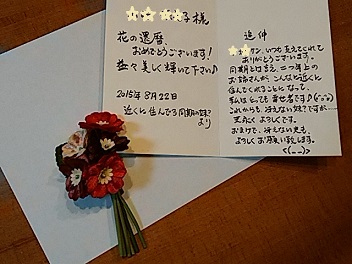 子様
花の還暦、
おめでとうございます!
益々美しく輝いて下さい♪
2015年8月22日
近くに住んでる同期の妹?
より
追伸
サン、いつも支えてくれて
ありがとうございます。
同期とは言え、二つ年上の
お姉さんが、こんなに近くに
住んでくれることになって、
私はとっても幸せ者です♪(^o^)
これからも、冴えない妹?ですが…
末永くよろしくです。
おまけで、冴えない兄も、
よろしくお願い致します。
<(_ _)>